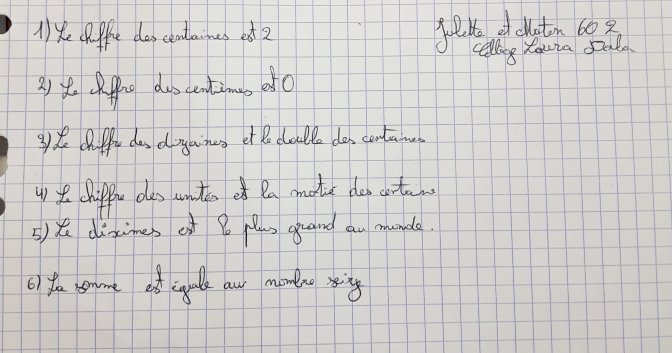 1) Le chiffre des centaines est 2
Juliette et Maton 602
Collège Laura
2) Le chiffre des centimes est 0
3) Le chiffre des dizaines et le double des centaines
4) Le chiffre des unités est la motié des centains
5) Le diximes est le plus grand au monde.
6) La somme est égale au nombre